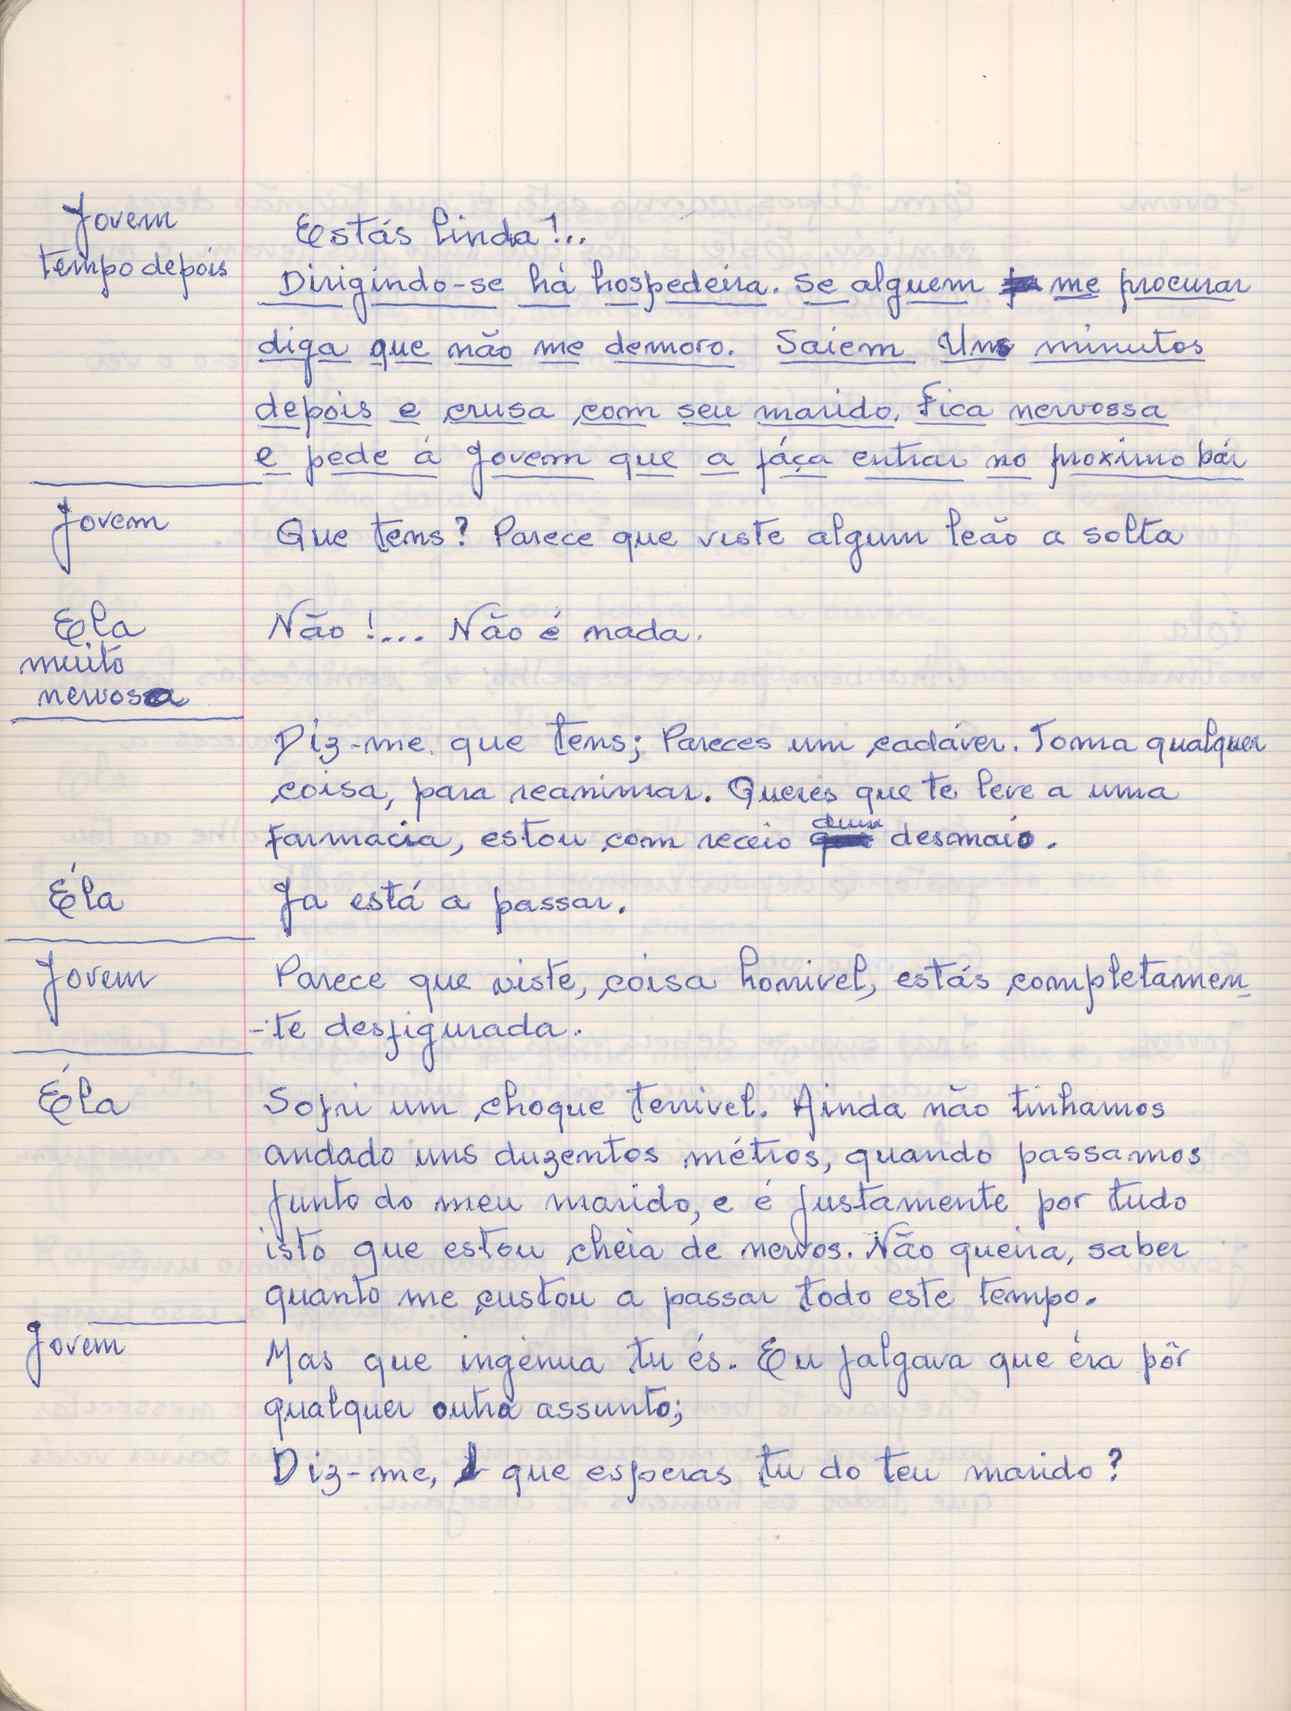 Jovem
Estás linda!...
tempo depois
Dirigindo-se há hospedeira. Se alguem me procurar
diga que não me demoro. Saiem Uns minutos
depois e crusa com seu marido. Fica nervossa
e pede á Jovem que a fáça entrar no proximo bár
Jovem
Que tens? Parece que viste algum leão a solta
Ela
Não!.... Não é nada.
muito
nervosa
Diz-me que tens; Pareces um cadáver. Toma qualquer
coisa, para reanimar. Queres que te leve a uma
Farmacia, estou com receio dum desmaio.
Éla
Ja está a passar.
Jovem
Parece que viste, coisa horrivel, estás completamen
-te desfigurada.
Éla
Sofri um choque terrivel. Ainda não tinhamos
andado uns duzentos métros, quando passamos
junto do meu marido, e é justamente por tudo
isto que estou cheia de nervos. Não queira, saber
quanto me custou a passar todo este tempo.
Jovem
Mas que ingénua tu és. Eu jalgava que éra pôr
qualquer outro assunto;
Diz-me, que esperas tu do teu marido?